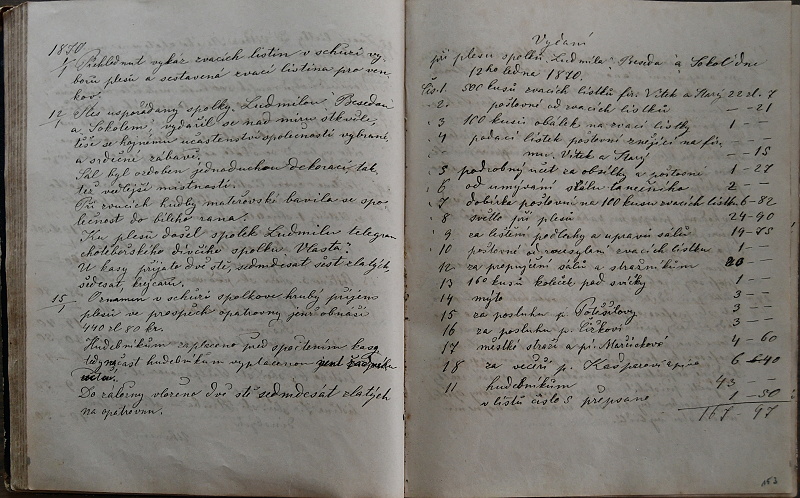 1870
1/1 Přehlédnut výkaz zvacích listin v schůzi vý-
boru plesů a sestavena zvací listina pro ven-
kov.
12/1 Ples uspořádaný spolky „Ludmilou“ Besedou
a „Sokolem“, vydařil se nad míru skvěle,
těše se hojnému účastenství společnosti vybrané,
a srdečné zábavě.
Sál byl ozdoben jednoduchou dekorací, tak
též vedlejší místnosti.
Při zvucích hudby bavila se spo-
lečnost do bílého rána.
Ku plesu došel spolek Ludmilu telegram
chotěbořského dívčího spolku „Vlasta“.
U kasy přijato dvě stě, sedmdesát šest zlatých,
šedesát, krejcarů.
15/1 Oznámen v schůzi spolkové hrubý příjem
plesu ve prospěch opatrovny jenž obnáší
440 zl 80 kr.
Hudebníkům zapraveno před spočtením kasy
hudebníkům vyplacenou
Do záložny vloženo dvě stě sedmdesát zlatých
na opatrovnu.
Vydání
při plesu spolků „Ludmila“ „Beseda“ a „Sokol“ dne
12ho ledna 1870.
Čís 1. 500 kusů zvacích lístků fir. Vítek a Starý 22 zl. 7
„ 2. poštovné od zvacích lístků — — 21
„ 3 100 kusů obálek na zvací lístky 1 — —
„ 4 podací lístek poštovní znějící na fir.
Vítek a Starý — — 15
„ 5 podrobný účet za obsílky a poštovné 1 — 27
„ 6 od umývání sálu tanečního 2 — —
„ 7 dobírka poštovní na 100 kusů zvacích lístků 6 — 82
„ 8 světlo při plesu 24 — 90
„ 9 za leštění podlahy a úpravu sálů 19 — 75
„ 10 poštovné od rozesýlání zvacích lístků 1 — —
12 za propůjčení sálů a strážníkům — —
13 160 kusů koleček pod svíčky 1 — —
14 mýto 3 — —
15 za posluhu p. 3 — —
16 za posluhu p. 3 — —
17 městké stráži a pí. Maříčkové 4 — 60
18 za večeři p. 6 — 40
11 hudebníkům 43 — —
v lístu čislo 5 přepsáné 1 — 50
167 — 97
163